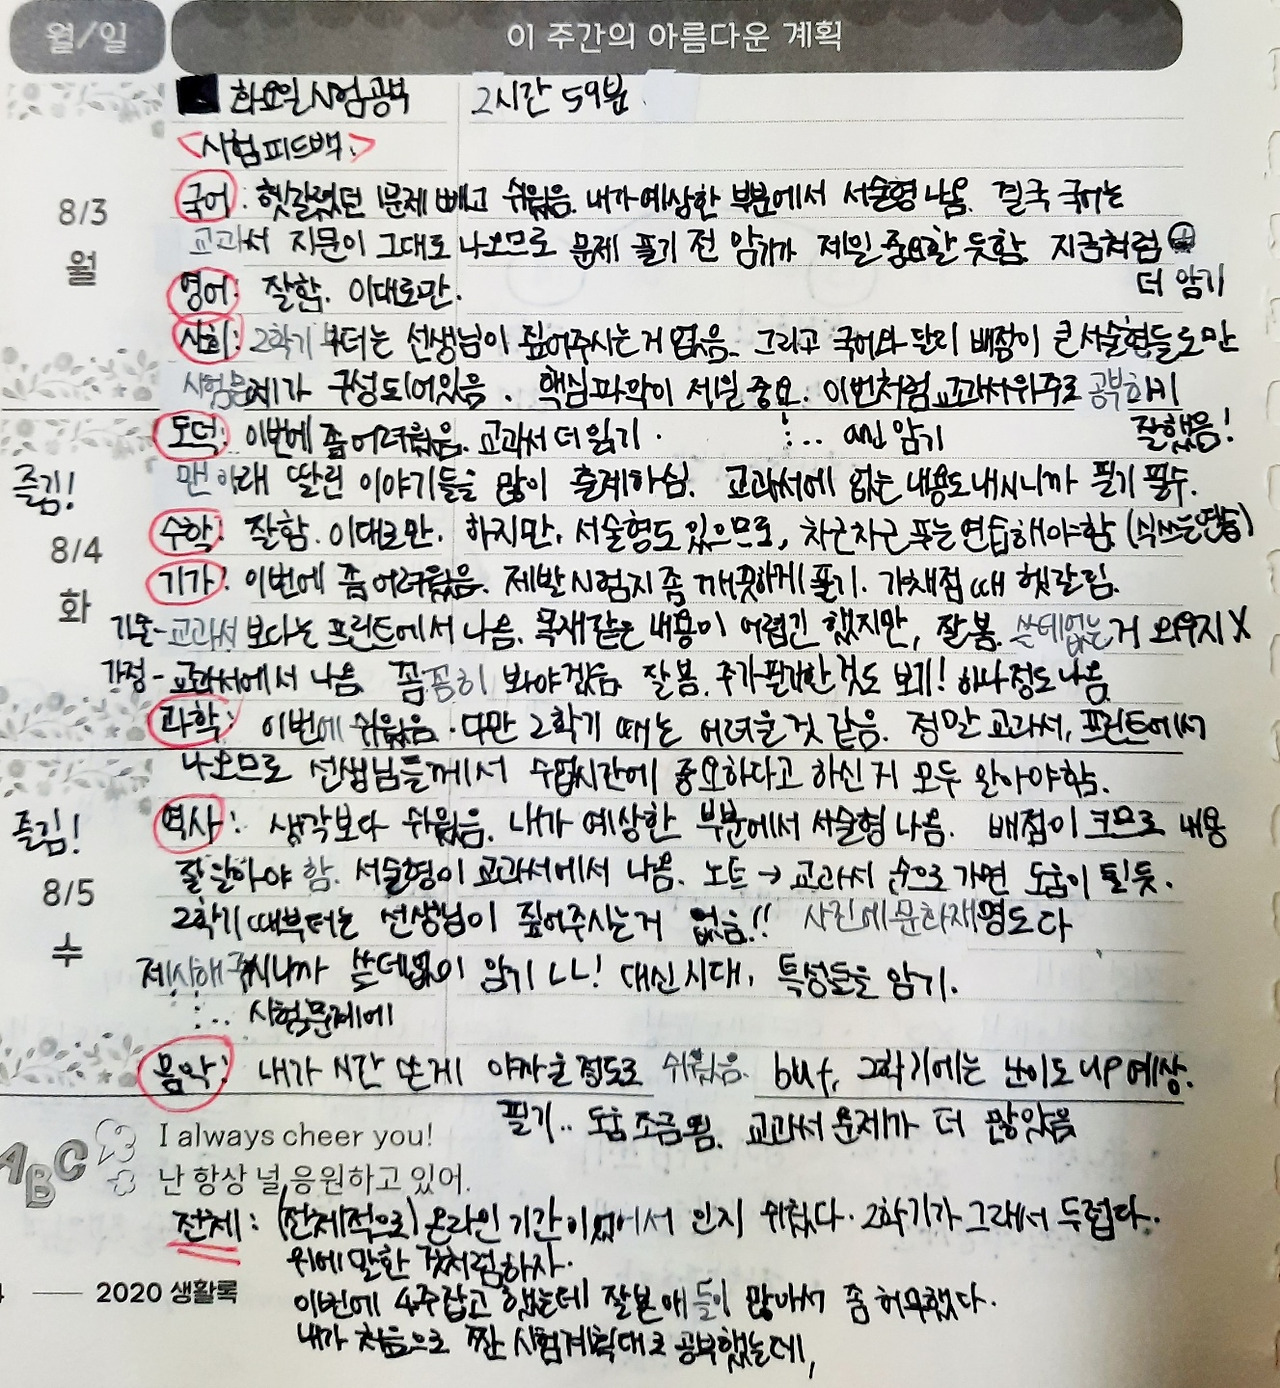 월/일
이 주간의 아름다운 계획
화요일 시험공부 2시간 59분
<시험피드백>
8/3
월
국어: 헷갈렸던 1문제 빼고 쉬웠음. 내가 예상한 부분에서 서술형 나옴. 결국 국어는
교과서 지문이 그대로 나오므로 문제 풀기 전 암기가 제일 중요할 듯함. 지금처럼
더 암기
영어: 잘함. 이대로만.
사회: 2학기부터는 선생님이 짚어주시는거 없음. 그리고 국어와 달리 배점이 큰 서술형들로만
시험문제가 구성되어있음. 핵심파악이 제일 중요. 이번처럼 교과서위주로 공부하기
도덕: 이번에 좀 어려웠음. 교과서 더 읽기. 암기 잘했음!
즐김!
맨 아래 딸린 이야기들을 많이 출제하심. 교과서에 없는 내용도 내시니까 필기 필수.
8/4
화
수학: 잘함. 이대로만. 하지만, 서술형도 있으므로, 차근차근 푸는 연습해야함 (식쓰는연습)
기가: 이번에 좀 어려웠음. 제발 시험지 좀 깨끗하게 풀기. 가채점 때 헷갈림.
기술-교과서 보다는 프린트에서 나옴. 목재같은 내용이 어렵긴 했지만, 잘봄. 쓸데없는거 외우지 X
가정- 교과서에서 나옴. 꼼꼼히 봐야겠음 잘봄. 추가필기한 것도 보기! 하나정도 나옴
과학: 이번에 쉬웠음. 다만 2학기 때는 어려울것 같음. 정말 교과서, 프린트에서
나오므로 선생님들께서 수업시간에 중요하다고 하신거 모두 알아야함.
즐김!
역사: 생각보다 쉬웠음. 내가 예상한 부분에서 서술형 나옴. 배점이 크므로 내용
8/5
수
잘 알아야 함. 서술형이 교과서에서 나옴. 노트 → 교과서 순으로 가면 도움이 될듯.
2학기 때부터는 선생님이 짚어주시는거 없음!! 사진에 문화재명도 다
제시해주시니까 쓸데없이 암기 ㄴㄴ! 대신 시대, 특성들을 암기.
시험문제에
음악: 내가 시간 쓴게 아까울 정도로 쉬웠음. but, 2학기에는 난이도 up 예상.
필기.. 도움 조금 됨. 교과서 문제가 더 많았음
ABC
I always cheer you!
난 항상 널 응원하고 있어.
전체: (전체적으로) 온라인 기간이 있어서 인지 쉬웠다. 2학기가 그래서 두렵다..
위에 말한 것처럼 하자.
2020 생활록
이번에 4주잡고 했는데 잘본 애들이 많아서 좀 허무했다.
내가 처음으로 짠 시험계획대로 공부했는데,